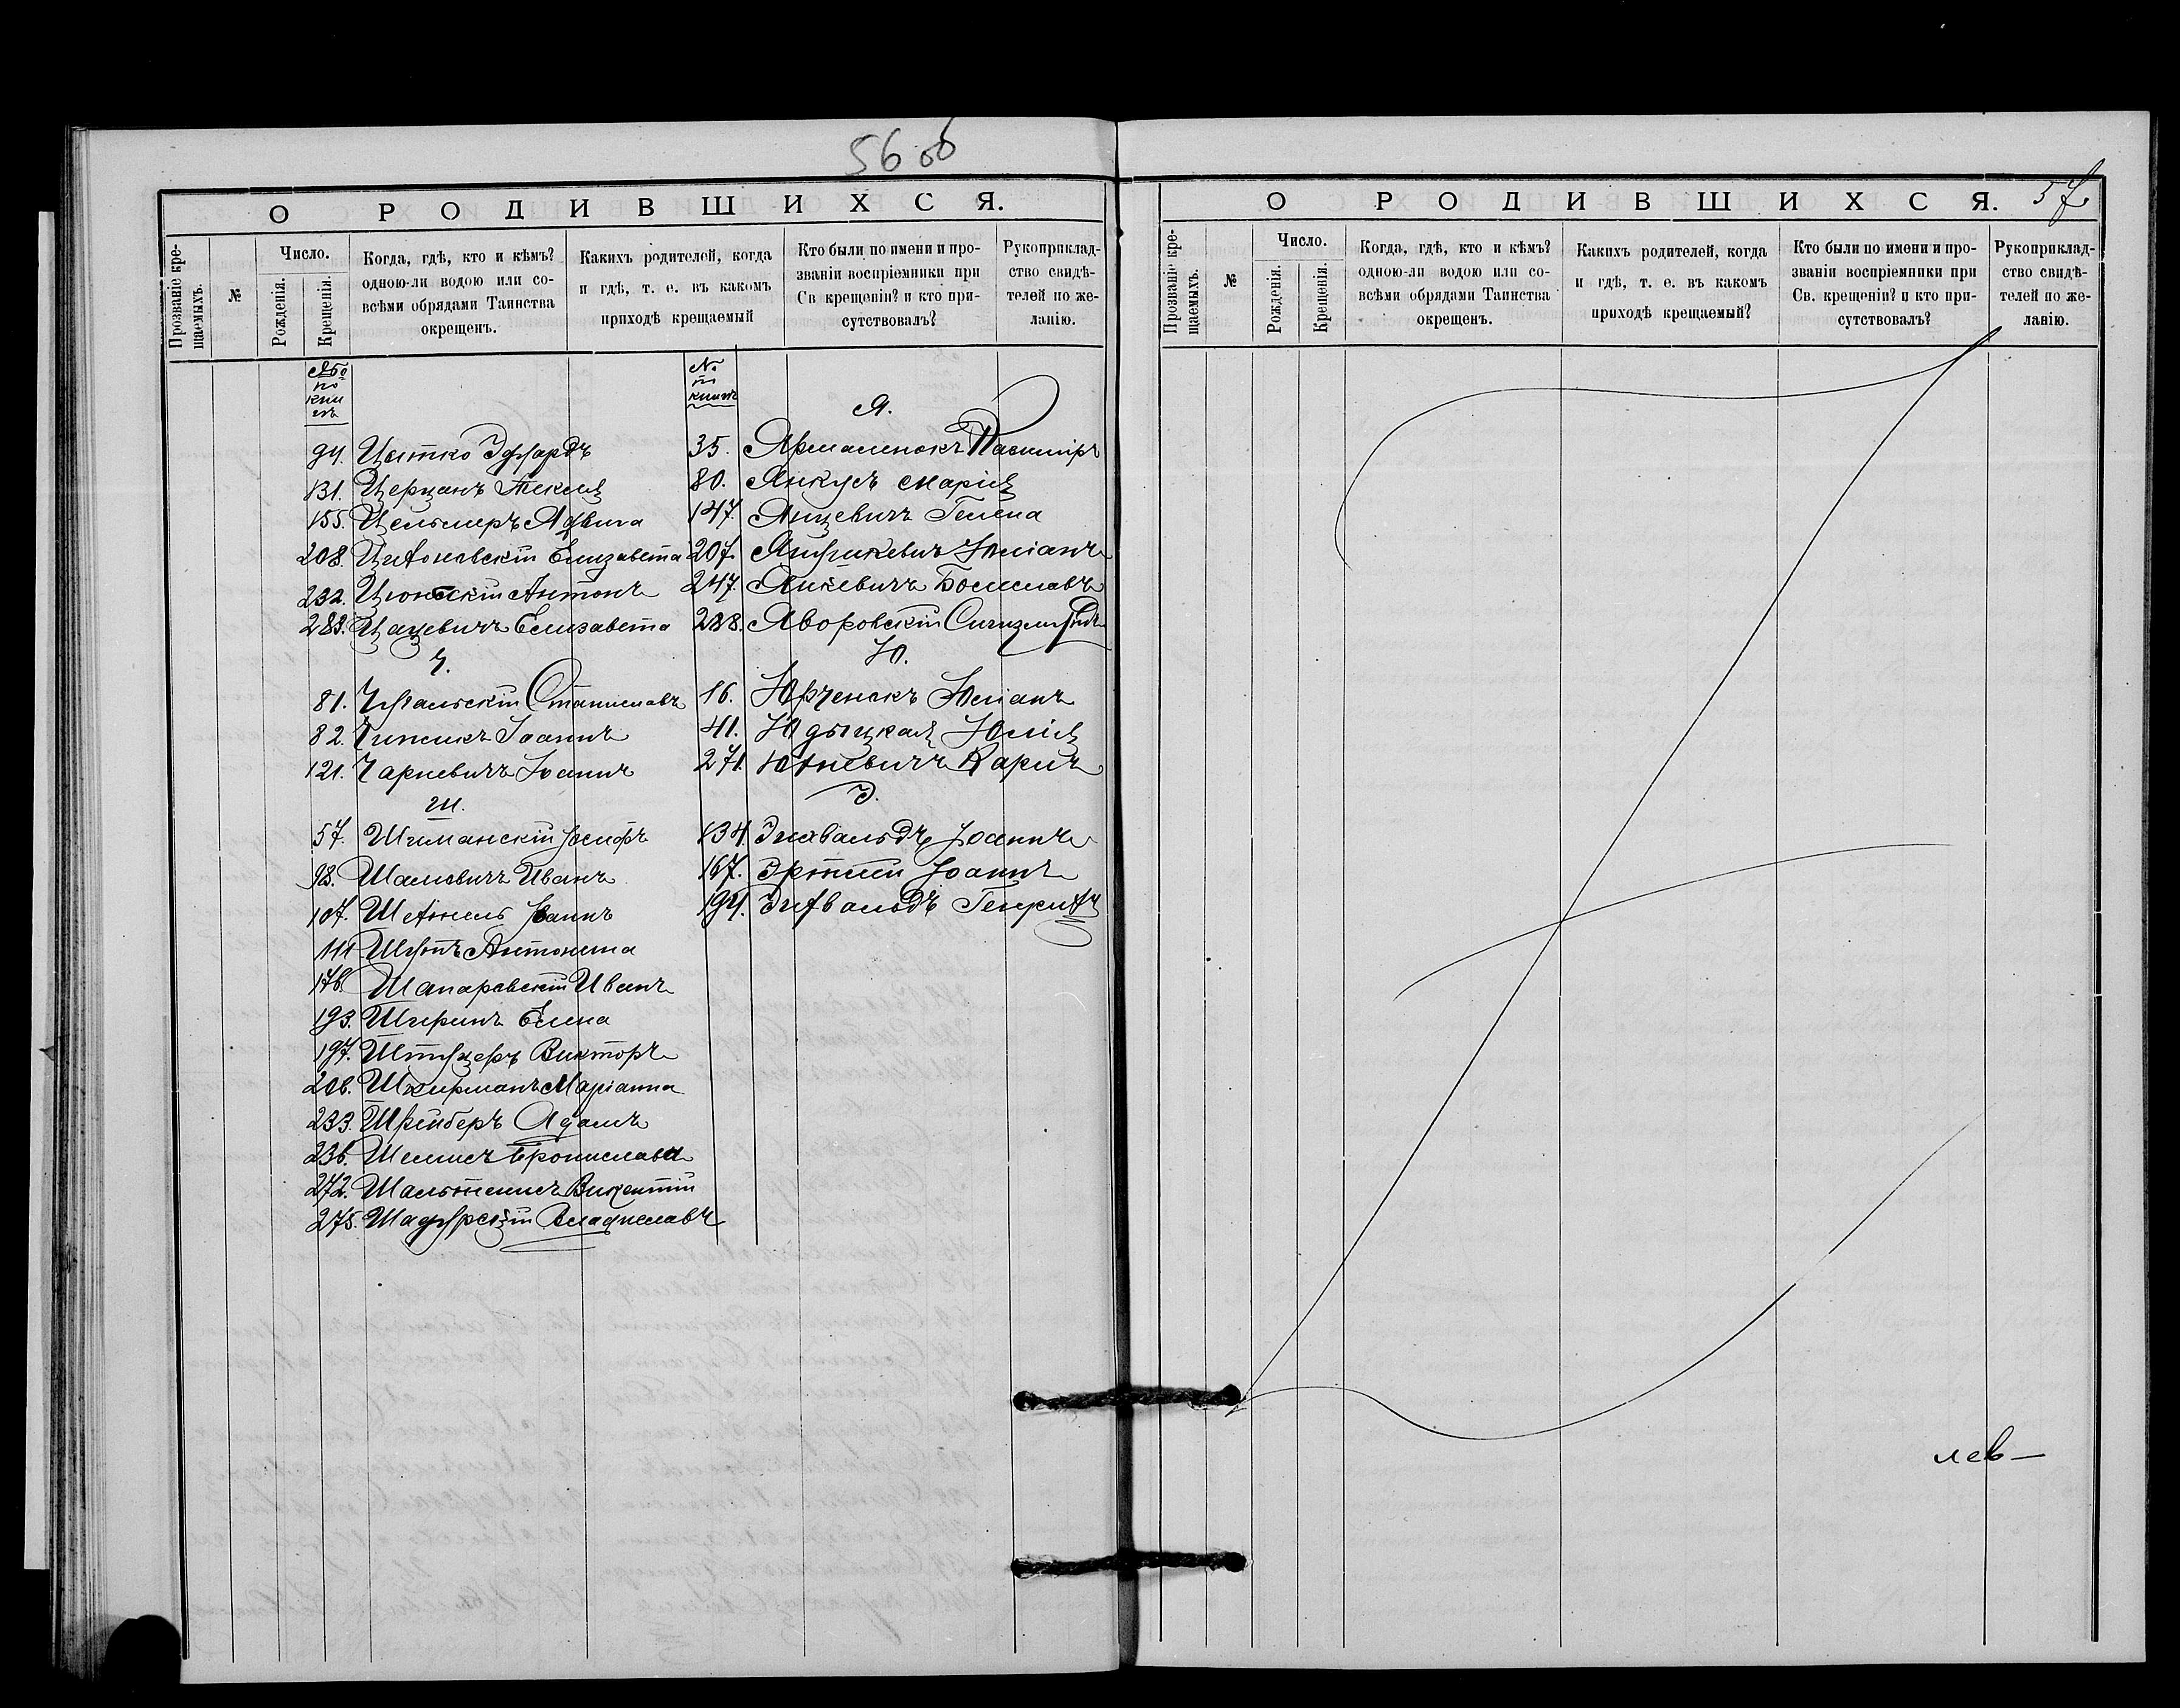 56 об
О РОДИВШИХСЯ.
Прозваніе крещаемыхъ.
№
Число.
Рожденія.
Крещенія.
Когда, гдѣ, кто и кѣмъ?
одною-ли водою или со-
всѣми обрядами Таинства
окрещенъ.
Какихъ родителей, когда
и гдѣ, т. е. въ какомъ
приходѣ крещаемый
Кто были по имени и про-
званіи воспріемники при
Св крещеніи? и кто при-
сутствовалъ?
Рукоприклад-
ство свидѣ-
телей по же-
ланію.
№ по книгѣ
94. Цятко Эдуардъ
131. Церцанъ Текля
155. Цельмеръ Ядвига
208. Елизавета
232. Антонъ
283. Цацевичъ Елизавета
Ч.
81. Чугальскій Станиславъ
82. Чипсикъ Іоаннъ
121. Чарневичъ Іоаннъ
Ш.
57. Шиманскій Іосифъ
98. Шамовичъ Иванъ
107. Іоаннъ
111 Шутъ Антонина
178. Шапаровскій Иванъ
193. Ширинъ Елена
197. Штуцеръ Викторъ
206. Шкирманъ Маріанна
233. Шрейберъ Адамъ
236. Шемисъ Бронислава
272. Шальтенисъ Викентій
275. Шадурскій Владиславъ
№ по книгѣ
Я.
35. Казиміръ
80. Янкусъ Марія
147 Янцевичъ Гелена
207. Янушкевичъ Юліанъ
247. Янкевичъ Болеславъ
288. Яворовскій Сигизмундъ
Ю.
16. Юрченокъ Юліанъ
41. Юдыцкая Юлія
271. Юхневичъ Карлъ
Э.
134. Эхвальдъ Іоаннъ
167. Эртели Іоаннъ
194. Эйхвальдъ Генрихъ
57.
О РОДИВШИХСЯ.
Прозваніе крещаемыхъ.
№
Число.
Рожденія.
Крещенія.
Когда, гдѣ, кто и кѣмъ?
одною-ли водою или со-
всѣми обрядами Таинства
окрещенъ.
Какихъ родителей, когда
и гдѣ, т. е. въ какомъ
приходѣ крещаемый?
Кто были по имени и про-
званіи воспріемники при
Св. крещеніи? и кто при-
сутствовалъ?
Рукоприклад-
ство свидѣ-
телей по же-
ланію.
лев—